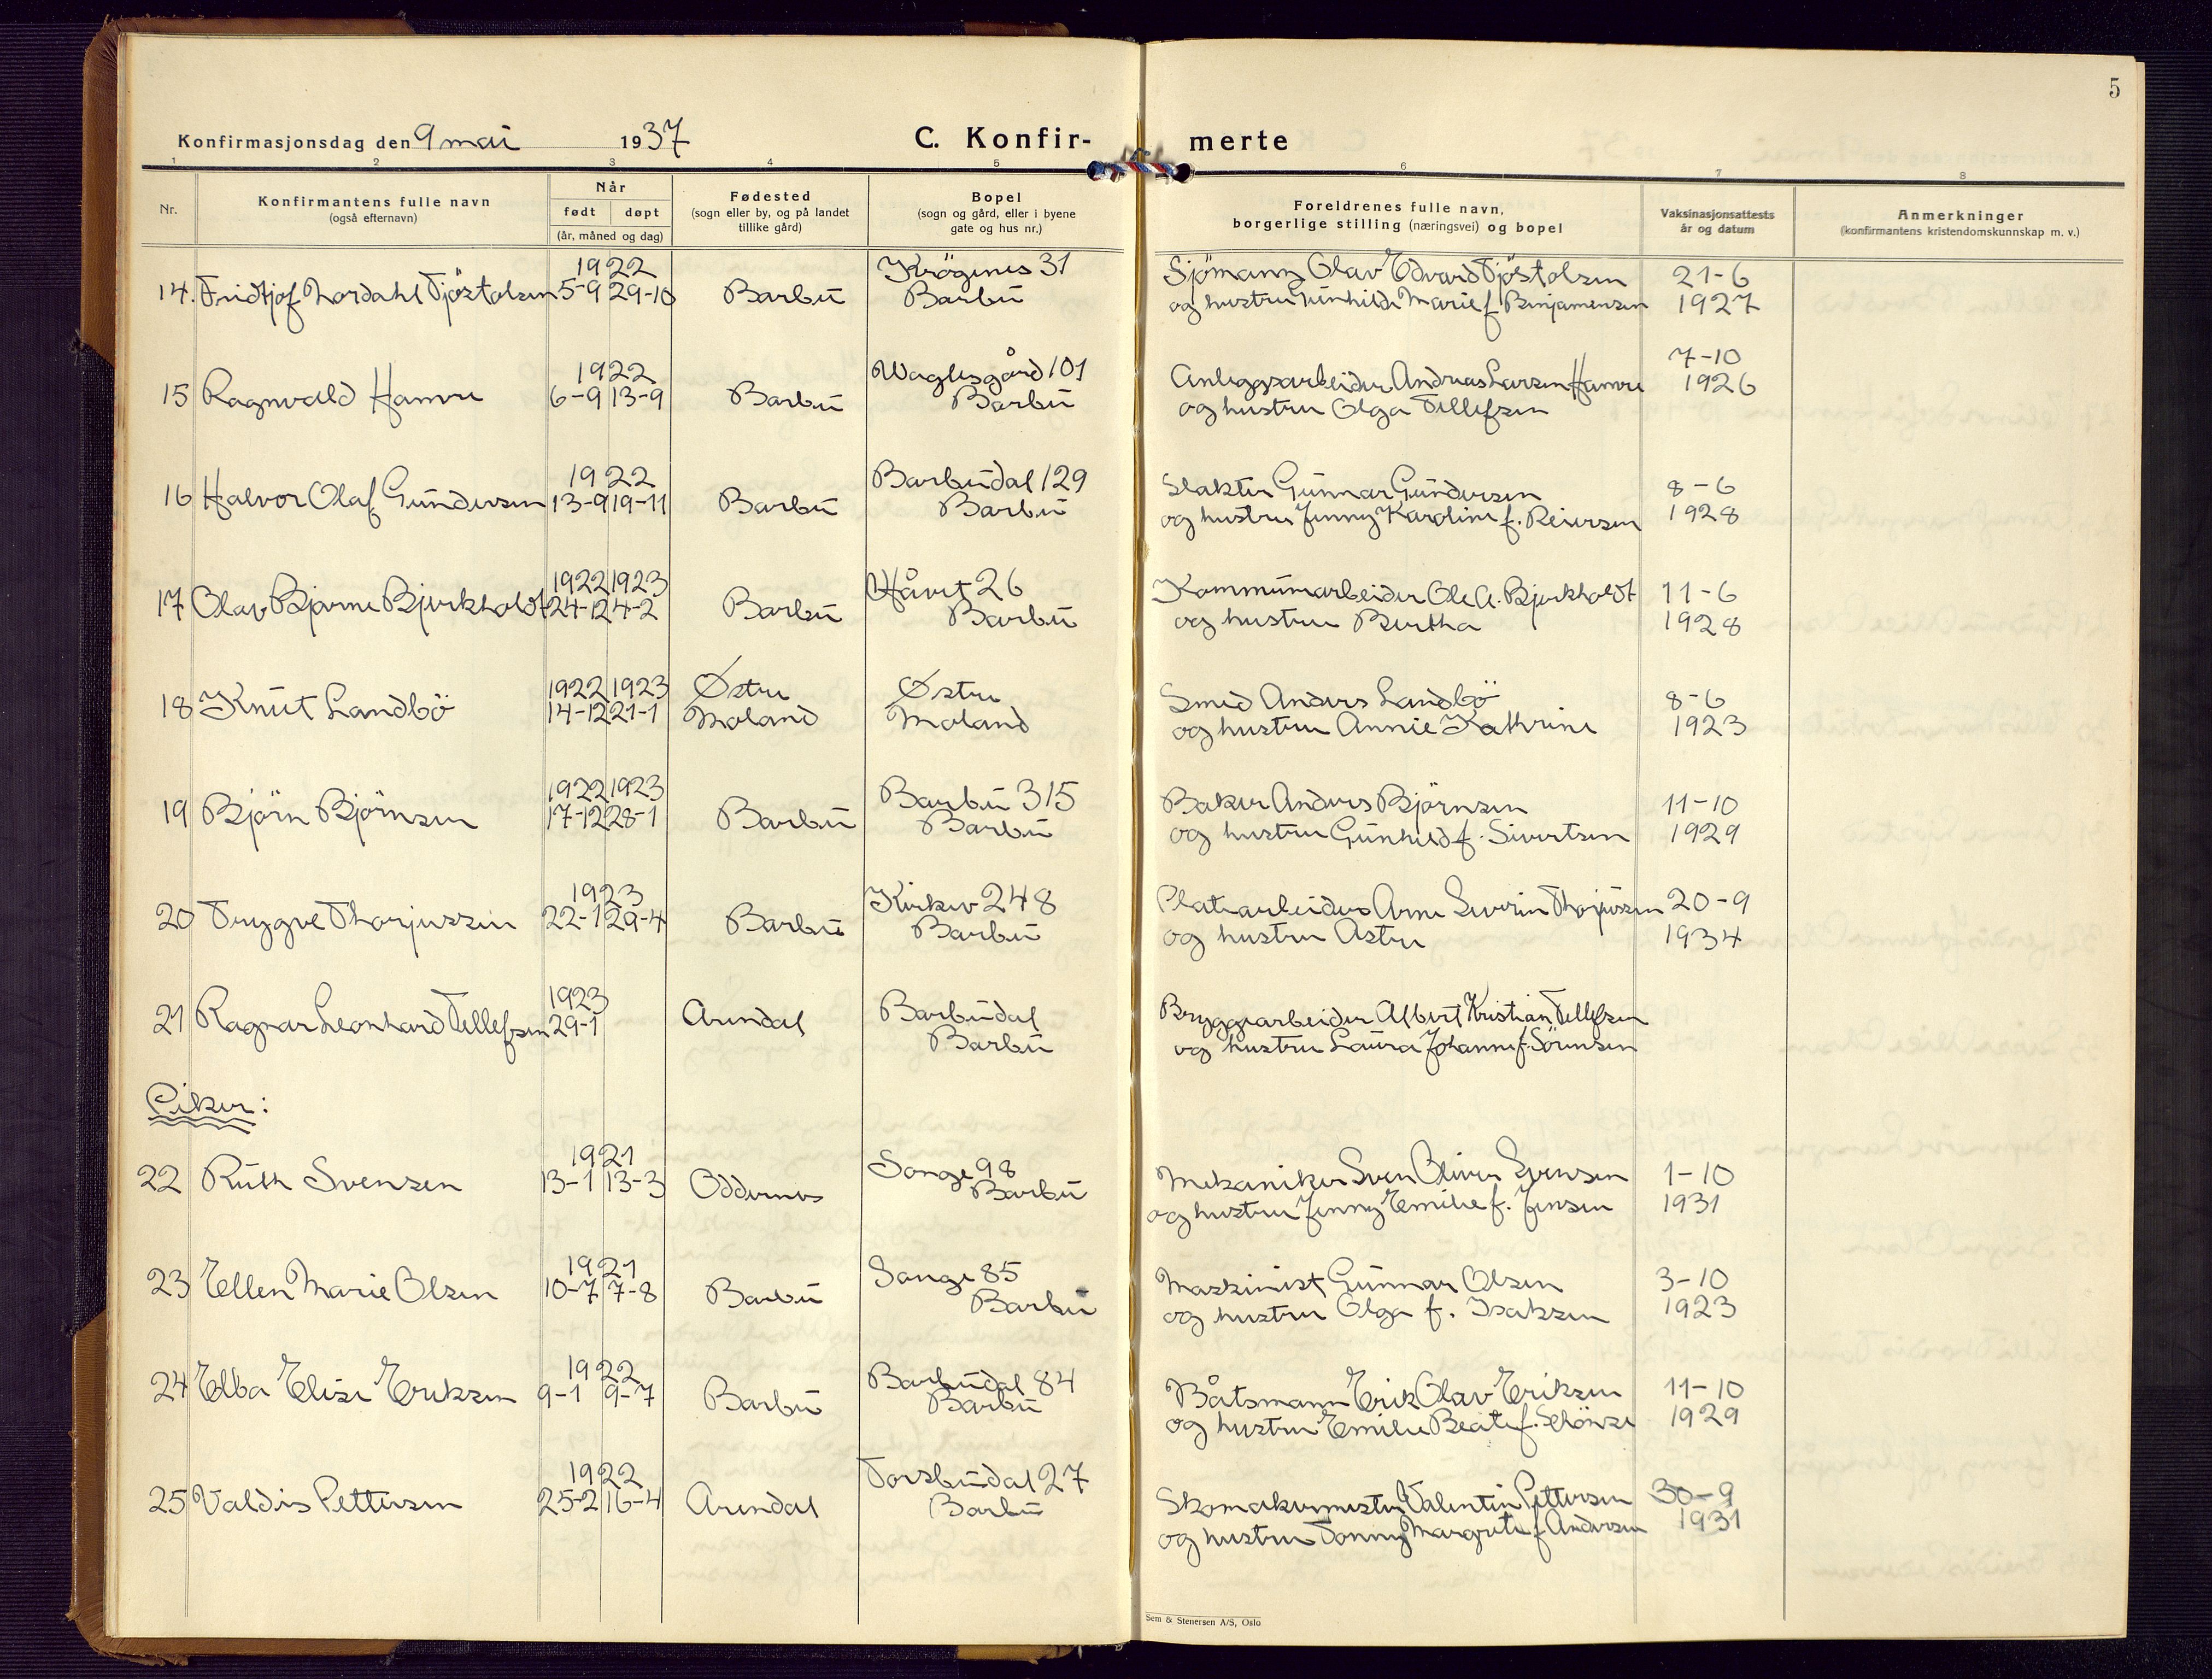 5
Konfirmasjonsdag den 9 mai 1937
C. Konfirmerte
1 2 3 4 5 6 7 8
Nr.
Konfirmantens fulle navn
(også efternavn)
Når
født døpt
(år, måned og dag)
Fødested
(sogn eller by, og på landet
tillike gård)
Bopel
(sogn og gård, eller i byene
gate og hus nr.)
Foreldrenes fulle navn,
borgerlige stilling (næringsvei) og bopel
Vaksinasjonsattests
år og datum
Anmerkninger
(konfirmantens kristendomskunnskap m. v.)
1922 Krögenes 31 Sjömann Olav Edvard Tjöstolsen 21-6
14. Fridtjof Nordahl Tjöstolsen 5-9 29-10 Barbu Barbu og hustru Gunhilde Marie f. Benjaminsen 1927
1922 Waglesgård 101 7-10
15 Ragnvald Hamre 6-9 13-9 Barbu Barbu Anleggsarbeider Andreas Larsen Hamre 1926
og hustru Olga Tellefsen
1922 Barbudal 129 Slakter Gunnar Gundersen 8-6
16 Halvor Olaf Gundersen 13-9 19-11 Barbu Barbu og hustru Jenny Karoline f. Reiersen 1928
1922 1923 Håvet 26 Kommunearbeider Ole A. Bjerkholdt 11-6
17 Olav Bjarne Bjerkholdt 24-12 4-2 Barbu Barbu og hustru Bertha 1928
1922 1923 Østre Østre Smed Anders Landbö 8-6
18 Knut Landbö 14-12 21-1 Moland Moland og hustru Annie Kathrine 1923
1922 1923 Barbu 315 Baker Anders Björnsen 11-10
19 Björn Björnsen 17-12 28-1 Barbu Barbu og hustru Gunhild f. Sivertsen 1929
1923 Kirkev 248 Platearbeider Arne Severin Thorjussen 20-9
20 Trygve Thorjussen 22-1 29-4 Barbu Barbu og hustru Astri 1934
1923 Barbudal Bryggearbeider Albert Kristian Tellefsen
21 Ragnar Leonhard Tellefsen 29-1 Arendal Barbu og hustru Laura Johanne f. Sörensen
Piker:
1921 Songe 98 Mekaniker Sven Oliver Svensen 1-10
22 Ruth Svensen 13-1 13-3 Oddernes Barbu og hustru Jenny Emilie f. Jensen 1931
1921 Songe 85 Maskinist Gunnar Olsen 3-10
23 Ellen Marie Olsen 10-7 7-8 Barbu Barbu og hustru Olga f. Isaksen 1923
1922 Barbudal 84 Båtsmann Erik Olav Eriksen 11-10
24 Elba Elise Eriksen 9-1 9-7 Barbu Barbu og hustru Emilie Beate f. 1929
1922 Torsbudal 27 Skomakermester Valentin Pettersen 30-9
25 Valdis Pettersen 25-2 16-4 Arendal Barbu og hustru Tonny Margrete f. Andersen 1931
Sem & Stenersen A/S, Oslo